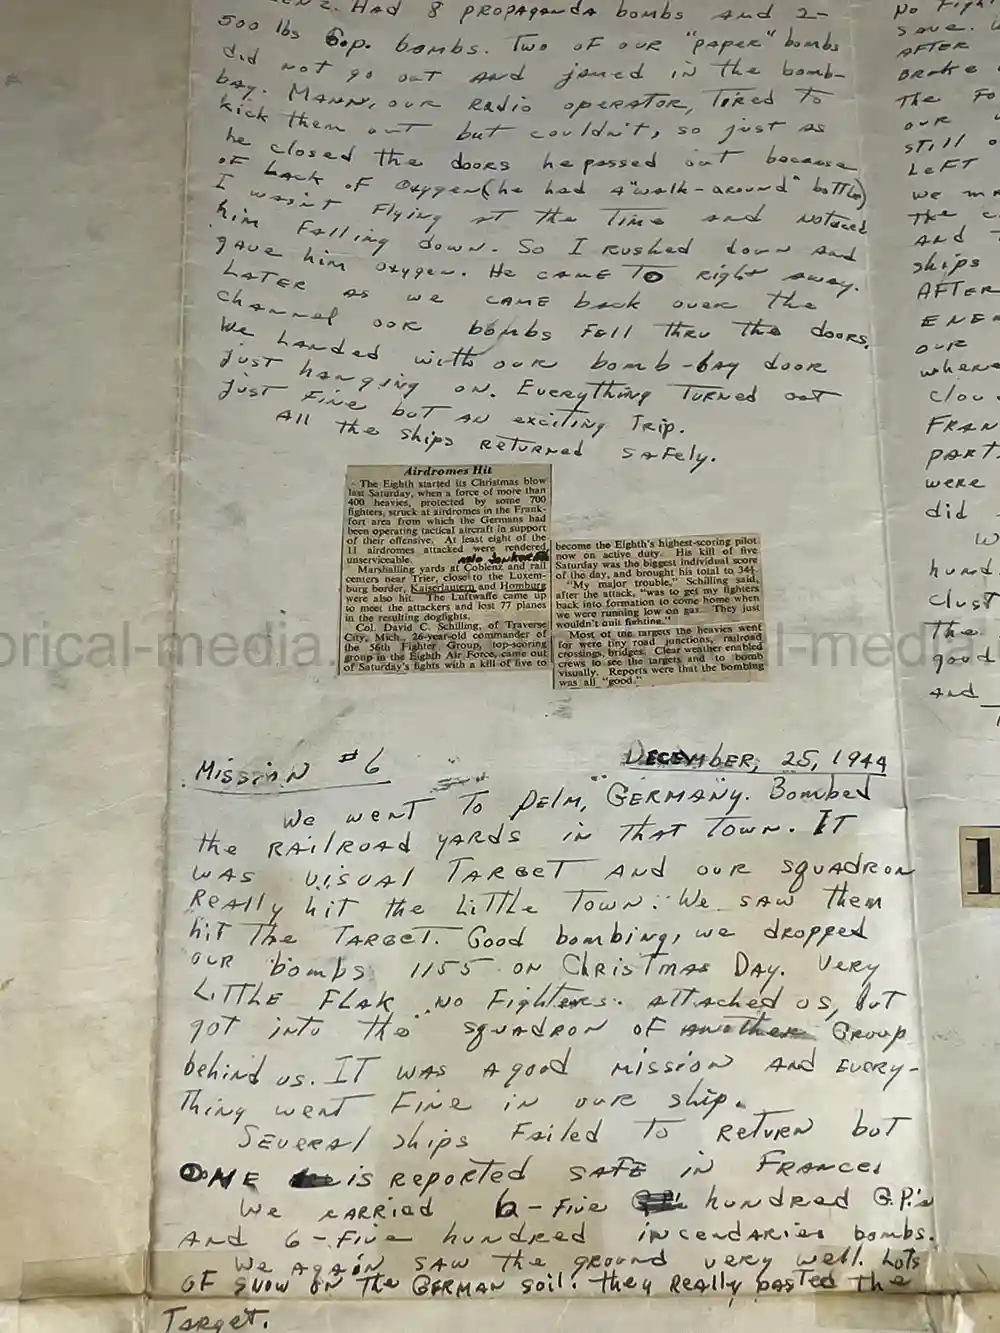 Had 8 propaganda bombs and 2-
500 lbs G.p. bombs. Two of our "paper" bombs
did not go out and jamed in the bomb-
bay. Mann, our radio operator, tired to
kick them out but couldn't, so just as
he closed the doors he passed out because
of lack of oxygen (he had a "walk-around" bottle)
I wasn't flying at the time and noticed
him falling down. So I rushed down and
gave him oxygen. He came to right away.
Later as we came back over the
channel our bombs fell thru the doors.
We landed with our bomb-bay door
just hanging on. Everything turned out
just fine but an exciting trip.
All the ships returned safely.
Airdromes Hit
The Eighth started its Christmas blow
last Saturday, when a force of more than
400 heavies, protected by some 700
fighters, struck at airdromes in the Frank-
fort area from which the Germans had
been operating tactical aircraft in support
of their offensive. At least eight of the
11 airdromes attacked were rendered
unserviceable.
Marshalling yards at Coblenz and rail
centers near Trier, close to the Luxem-
burg border, Kaiserlautern and Homburg
were also hit. The Luftwaffe came up
to meet the attackers and lost 77 planes
in the resulting dogfights.
Col. David C. Schilling, of Traverse
City, Mich., 26-year-old commander of
the 56th Fighter Group, top-scoring
group in the Eighth Air Force, came out
of Saturday's fights with a kill of five to
become the Eighth's highest-scoring pilot
now on active duty. His kill of five
Saturday was the biggest individual score
of the day, and brought his total to 34½.
"My major trouble," Schilling said,
after the attack, "was to get my fighters
back into formation to come home when
we were running low on gas. They just
wouldn't quit fighting."
Most of the targets the heavies went
for were tiny road junctions, railroad
crossings, bridges. Clear weather enabled
crews to see the targets and to bomb
visually. Reports were that the bombing
was all "good."
Mission #6 December, 25, 1944
We went to Pelm, "Germany. Bombed
the railroad yards in that town. It
was visual target and our squadron
really hit the little town. We saw them
hit the target. Good bombing, we dropped
our bombs 1155 on Christmas Day. Very
little flak no fighters attached us, but
got into the squadron of another Group
behind us. It was a good mission and every-
thing went fine in our ship.
Several ships failed to return but
one is reported safe in France.
We carried 6-five hundred G.P.'s
and 6-five hundred incendaries bombs.
We again saw the ground very well. Lots
of snow on the German soil. They really pasted the
Target.
No figh
save.
after
broke
the fo
our
still o
left
we ma
the c
and
ships
After
ene
our
where
clou
Fran
part.
were
did
W
hund
clust
The
good
and
T
orical-media.
l-media